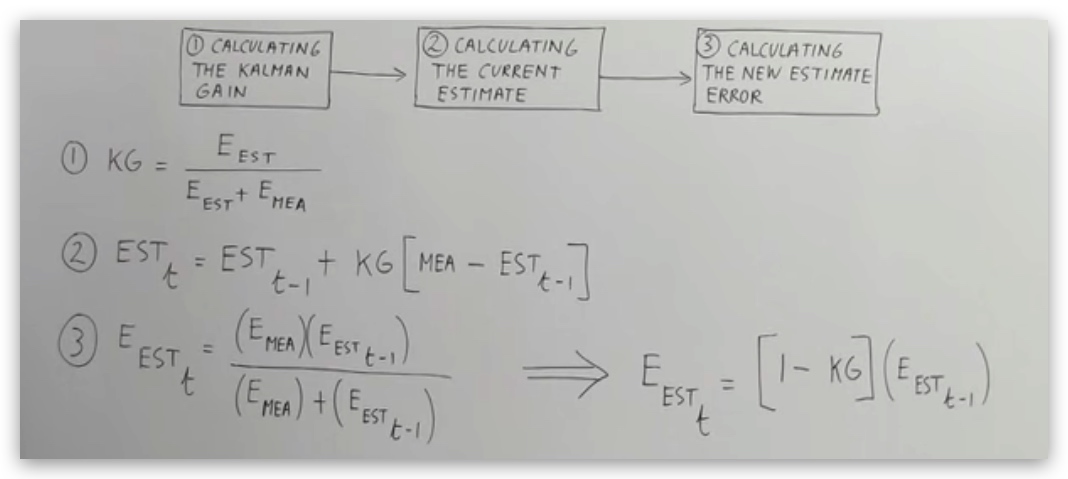 ① CALCULATING
THE KALMAN
GAIN
② CALCULATING
THE CURRENT
ESTIMATE
③ CALCULATING
THE NEW ESTIMATE
ERROR
① KG = E_EST / (E_EST + E_MEA)
② EST_t = EST_t-1 + KG [MEA − EST_t-1]
③ E_EST_t = (E_MEA)(E_EST_t-1) / ((E_MEA) + (E_EST_t-1)) ⟹ E_EST_t = [1 − KG](E_EST_t-1)